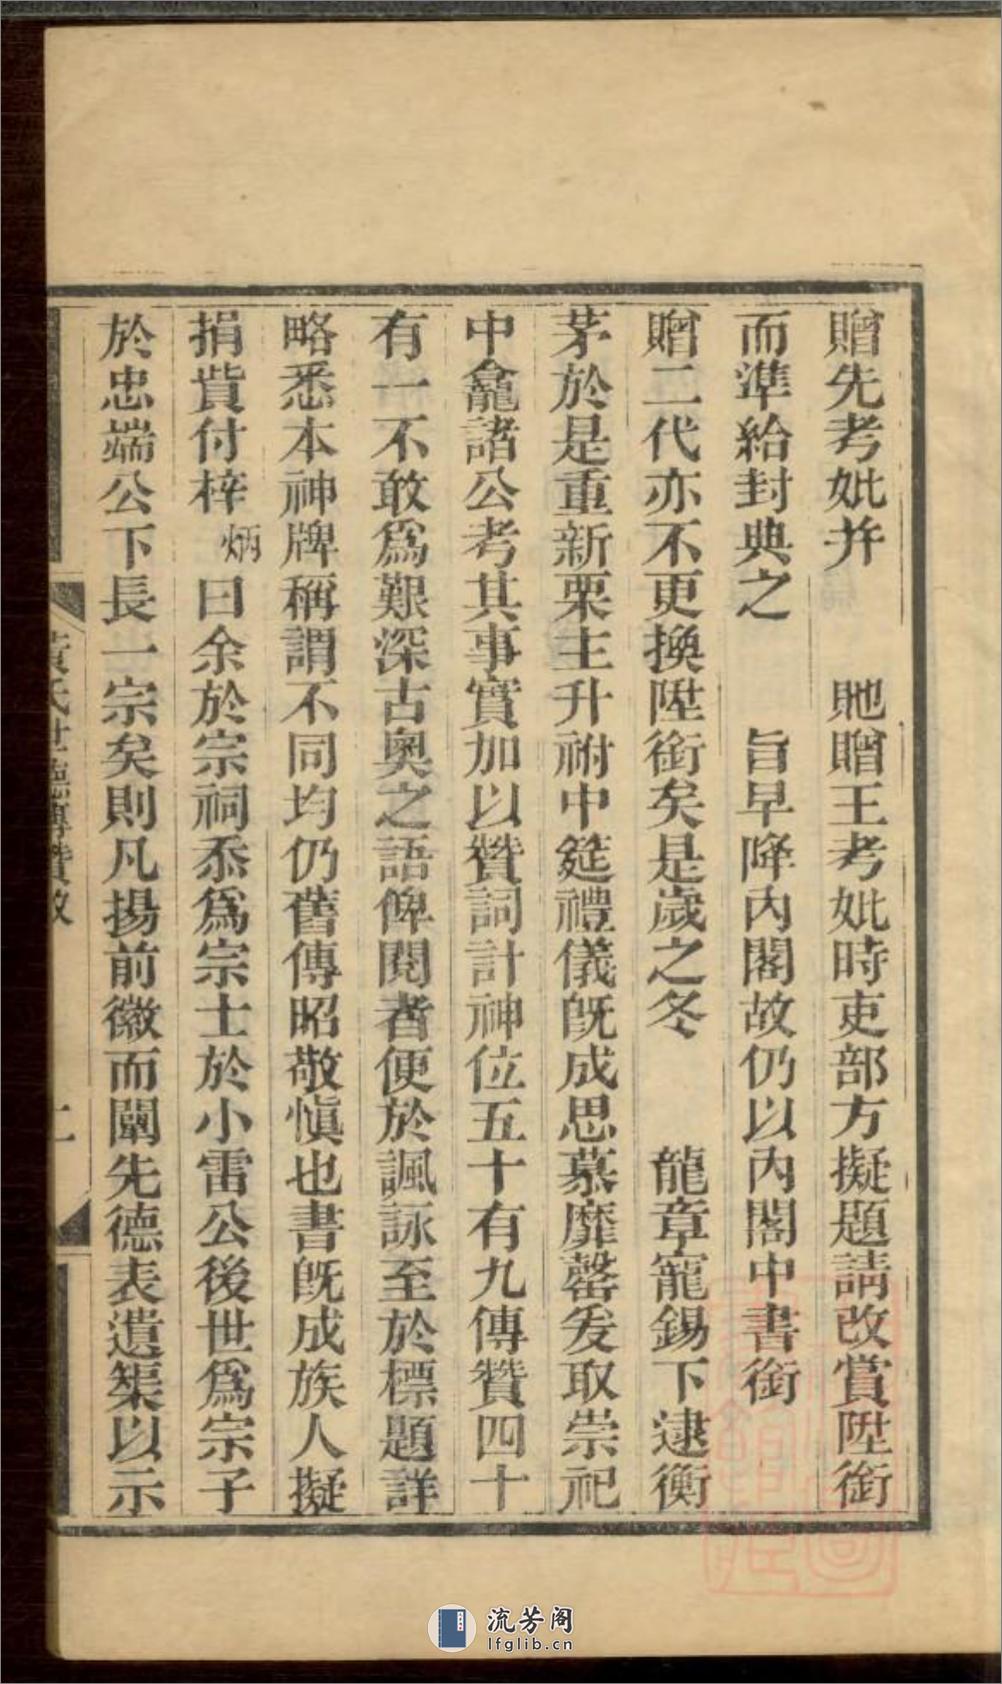 贈先考妣并　貤贈王考妣時吏部方擬題請改賞陞銜
而準給封典之　旨早降內閣故仍以內閣中書銜
贈二代亦不更換陞銜矣是歲之冬　龍章寵錫下逮衡
茅於是重新栗主升祔中筵禮儀旣成思慕靡罄爰取崇祀
中龕諸公考其事實加以贊詞計神位五十有九傳贊四十
有一不敢爲艱深古奧之語俾閱者便於諷詠至於標題詳
略悉本神牌稱謂不同均仍舊傳昭敬愼也書旣成族人擬
捐貲付梓炳曰余於宗祠忝爲宗士於小雷公後世爲宗子
於忠端公下長一宗矣則凡揚前徽而闡先德表遺榘以示
黃氏世德傳贊敘
流芳阁
lfglib.cn